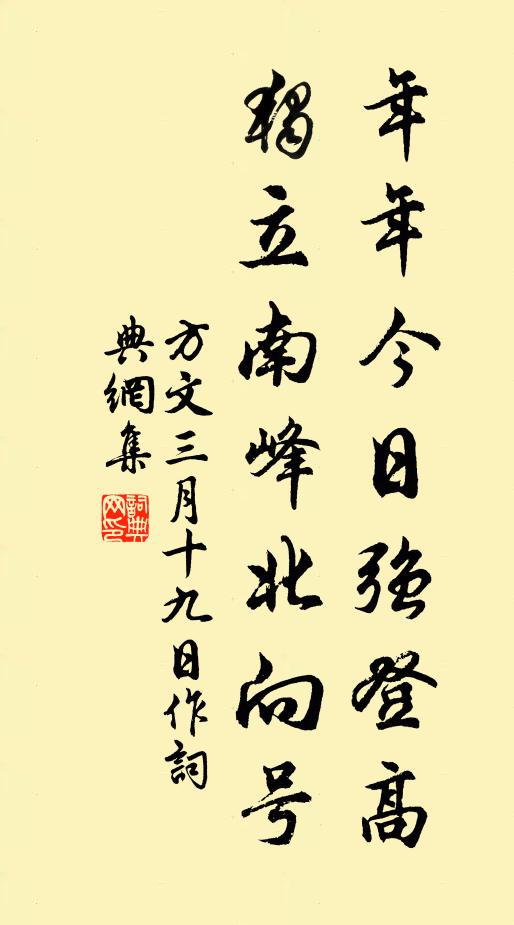 年年今日强登高
獨立南峰北向号
方文三月十九日作詞
典網集
詞典網印